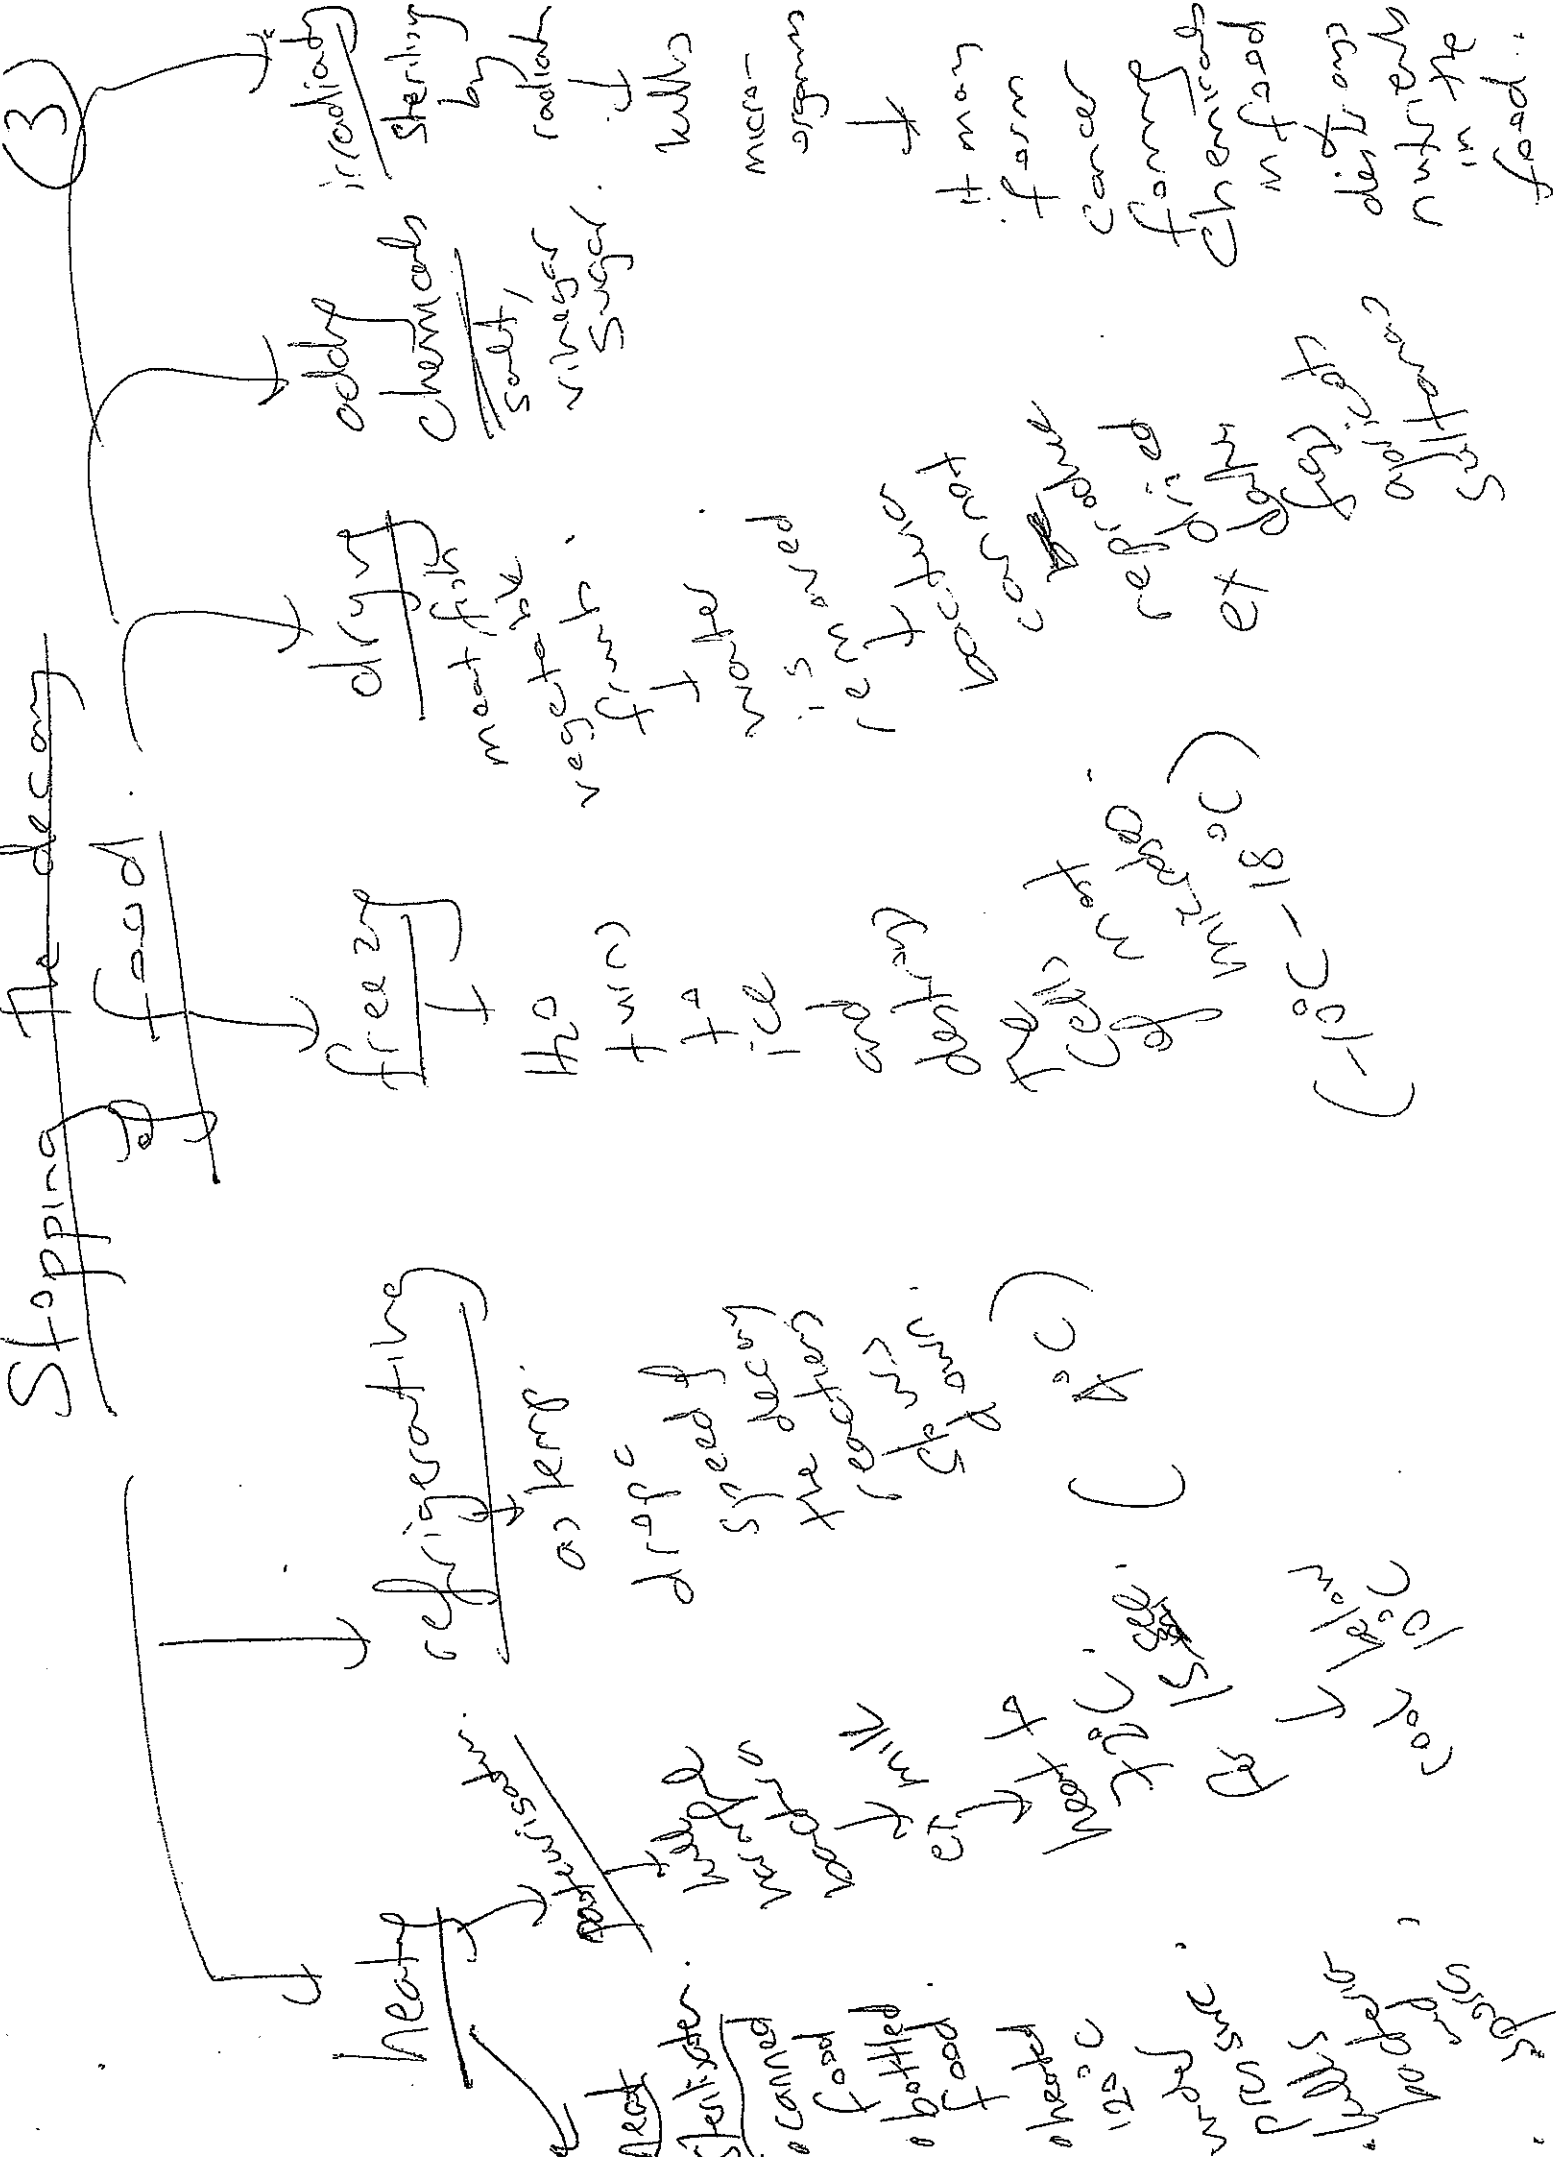 (3)
Stopping the decay
of food.
heating
heat
sterilisation.
• canned
food
• bottled
food.
• heated
120°C
under
pressure.
• kills
bacteria
and
spores
pasteurisation.
kill
harmful
bacteria
milk
heat to
72°C.
15 sec.
cool below
10°C
refrigerating
as temp.
drops
speed of
the decay
reactions
slows
down.
(4°C)
freezing
H2O
turns
to
ice
and
destroy
the
cells
of
(-10°C -18°C)
drying
meat, fish
vegetable
fruits.
water
is
removed
bacteria
cannot
reproduce
ex dried
figs
apricot
sultanas
adding
chemicals
salt,
vinegar
sugar.
irradiating
Sterilising
by
radiation
kills
micro-
organisms
it may
form
cancer
forming
chemicals
in food
destroys
nutrients
in the
food..